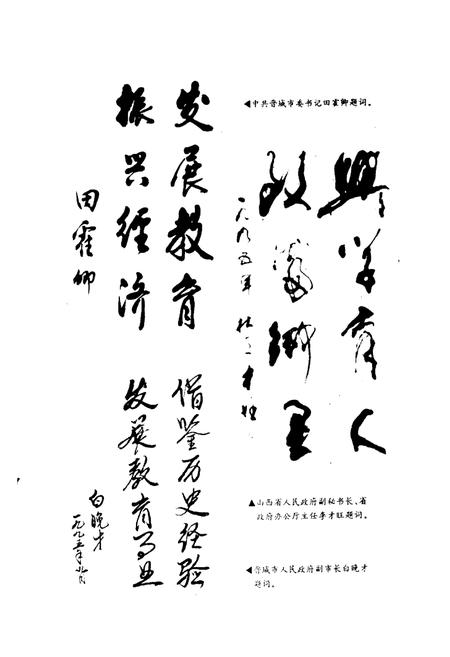 发展教育
振兴经济
田霍卿
◀中共晋城市委书记田霍卿题词。
興学育人
富鄉里
一九九五年
借鉴历史经验
发展教育事业
白晚才
一九九五年
▲山西省人民政府副秘书长、省
政府办公厅主任李才旺题词。
◀晋城市人民政府副市长白晚才
题词。